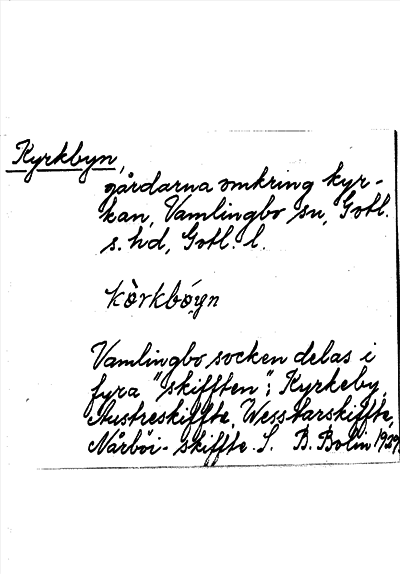 Kyrkbyn,
gårdarna omkring kyr-
kan, Vamlingbo sn, Gotl.
s. hd, Gotl. l.
kòrkbóyn
Vamlingbo socken delas i
fyra "skifften": Kyrkeby,
Austreskiffte, Wesstarskiffte,
Nårböi-skiffte. S. B. Bolin 1929